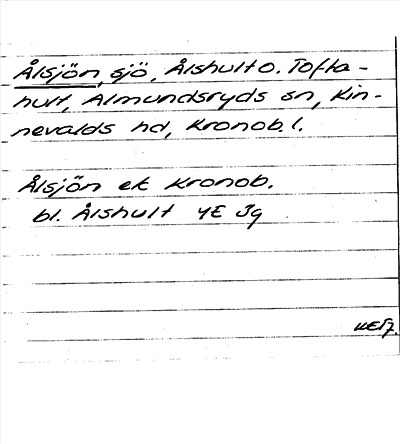 Ålsjön, sjö, Ålshult o. Tofta-
hult, Almundsryds sn, Kin-
nevalds hd, Kronob. l.
Ålsjön ek Kronob.
bl. Ålshult 4E Jg